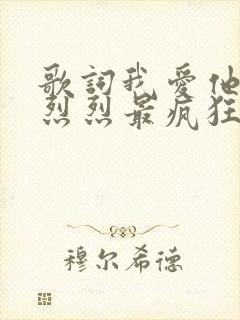 歌詞我愛他
烈烈最疯狂
穆尔希德